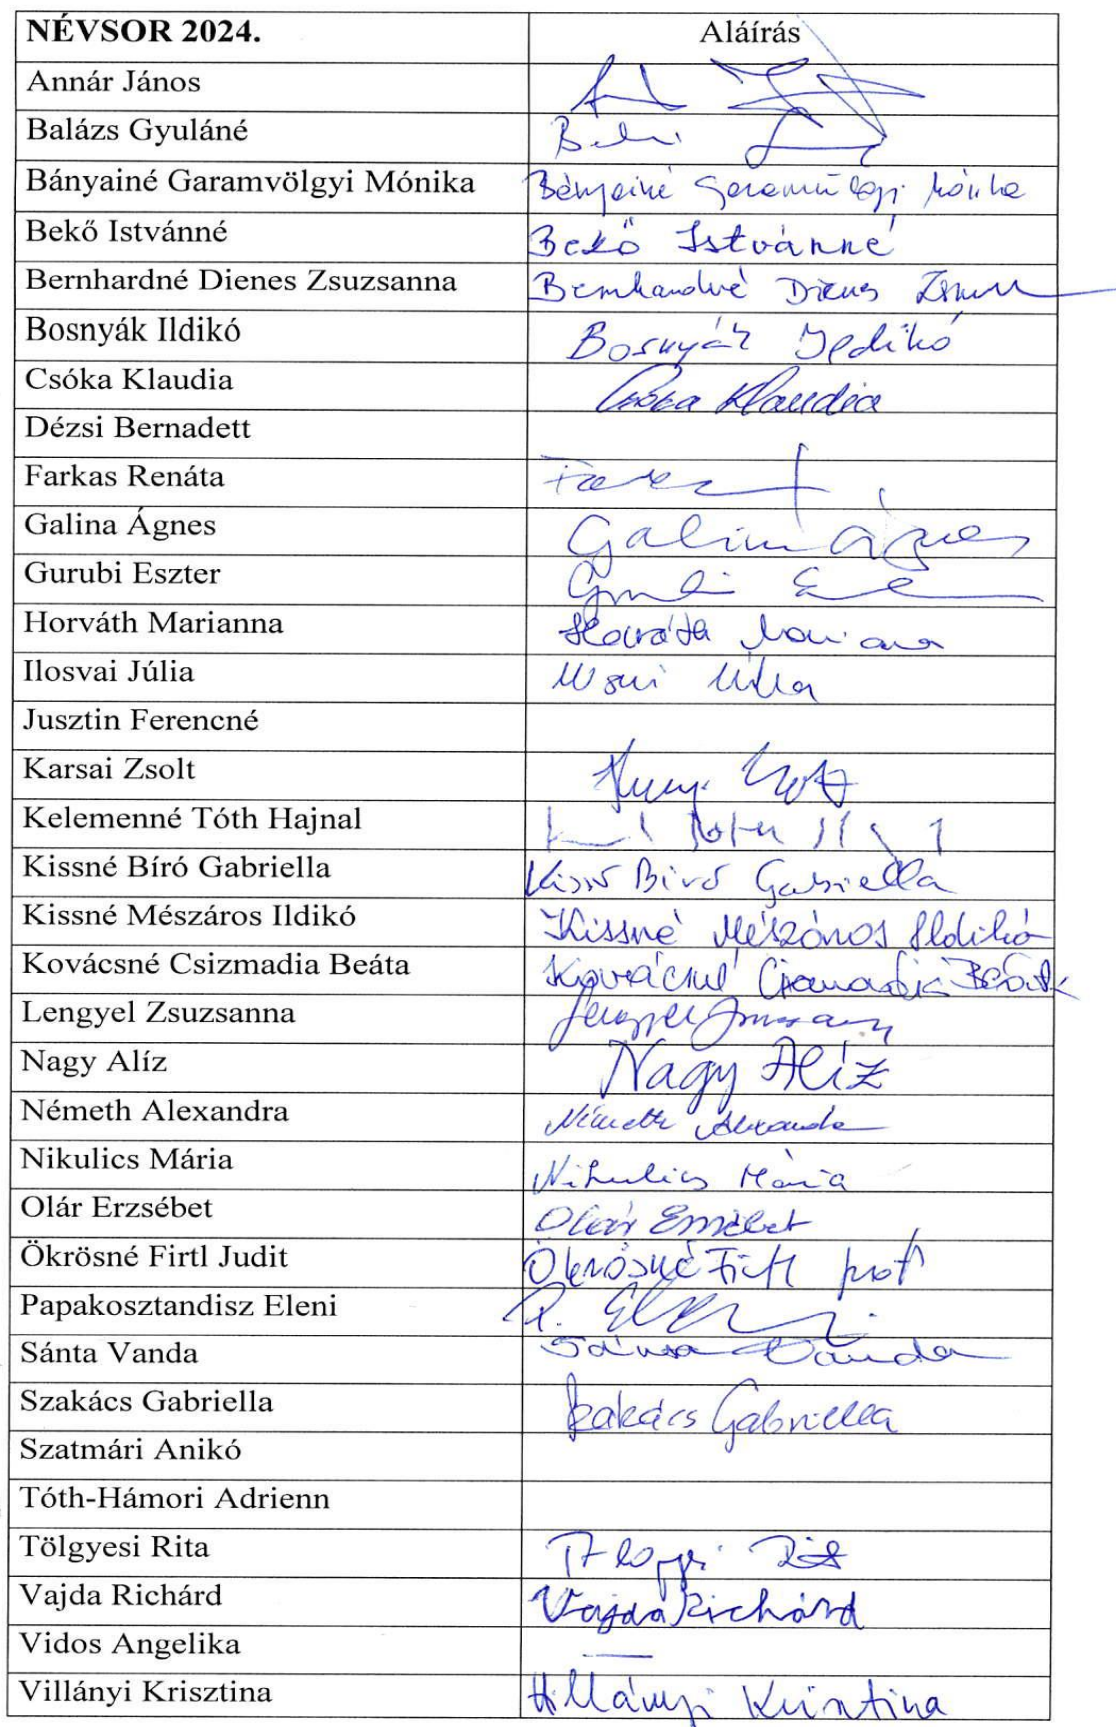 NÉVSOR 2024. Aláírás
Annár János
Balázs Gyuláné
Bányainé Garamvölgyi Mónika Bányainé Garamvölgyi Mónika
Bekő Istvánné Bekő Istvánné
Bernhardné Dienes Zsuzsanna Bernhardné Dienes
Bosnyák Ildikó Bosnyák Ildikó
Csóka Klaudia Csóka Klaudia
Dézsi Bernadett
Farkas Renáta
Galina Ágnes Galina Ágnes
Gurubi Eszter
Horváth Marianna Horváth Marianna
Ilosvai Júlia
Jusztin Ferencné
Karsai Zsolt
Kelemenné Tóth Hajnal
Kissné Bíró Gabriella Kissné Bíró Gabriella
Kissné Mészáros Ildikó Kissné Mészáros Ildikó
Kovácsné Csizmadia Beáta Kovácsné Csizmadia Beáta
Lengyel Zsuzsanna Lengyel Zsuzsanna
Nagy Alíz Nagy Alíz
Németh Alexandra Németh Alexandra
Nikulics Mária Nikulics Mária
Olár Erzsébet Olár Erzsébet
Ökrösné Firtl Judit Ökrösné Firtl
Papakosztandisz Eleni P. Eleni
Sánta Vanda Sánta Vanda
Szakács Gabriella Szakács Gabriella
Szatmári Anikó
Tóth-Hámori Adrienn
Tölgyesi Rita
Vajda Richárd Vajda Richárd
Vidos Angelika —
Villányi Krisztina Villányi Krisztina